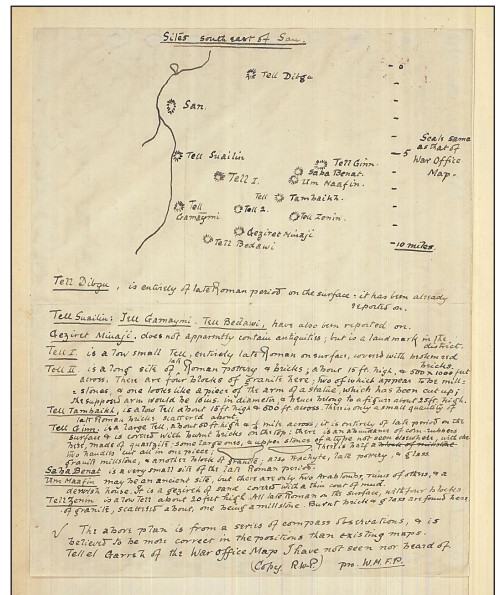 Sites south east of San.
Tell Dibgu
0
San.
Scale same
as that of
War Office
Map.
5
Tell Suailin
Tell Ginn.
Saba Benat.
Um Maafin.
Tell I.
Tell Tambaikh.
Tell Gamaymi
Tell 2.
Tell Zenin.
Geziret Minaji
Tell Bedawi
10 miles.
Tell Dibgu, is entirely of late Roman period on the surface: it has been already
reported on.
Tell Suailin: Tell Gamaymi. Tell Bedawi, have also been reported on.
Geziret Minaji. does not apparently contain antiquities, but is a landmark in the
district.
Tell I. is a low small Tell, entirely late Roman on surface, covered with broken red
bricks.
Tell II is a long site of late Roman pottery & bricks, about 15 feet high, & 500 x 1000 feet
across. There are four blocks of granite here; two of which appear to be mill-
stones, & one looks like a piece of the arm of a statue, which has been cut up;
the supposed arm would be in diameter, & hence belong to a figure about 25 feet high.
Tell Tambaikh, is a low Tell about 15 feet high & 600 ft. across. There is only a small quantity of
late Roman bricks scattered about.
Tell Ginn, is a large Tell, about 60 ft high & 1/4 mile across; it is entirely of late period on the
surface & is covered with burnt bricks on the top: there is an abundance of corn rubbers
here, made of quartzite some large ones, & upper stones of a type not seen elsewhere, with the
two handles cut all in one piece; there is half a block of millstone
granite millstone, & another block of granite, also trachyte, late pottery, & glass
Saba Benat is a very small site of the late Roman period.
Um Maafin may be an ancient site, but there are only two Arab tombs, ruins of others, & a
dervish house. It is a gezireh of sand covered with a thin coat of mud.
Tell Zenin is a low Tell about 20 feet high. All late Roman on the surface, with four blocks
of granite, scattered about, one being a millstone. Burnt brick & glass are found here.
✓ The above plan is from a series of compass observations, & is
believed to be more correct in the positions than existing maps.
Tell el Garreh of the War Office Map I have not seen nor heard of
(Copy. R.W.P.) pro. W.M.F.P.